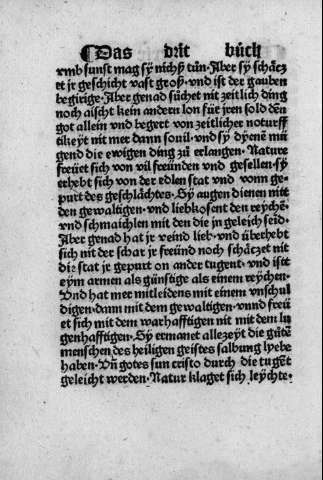 ¶Das drit bůch
vmb sunst mag sy nichß tůn. Aber sy schäcz
et jr geschicht vast groß. vnd ist der gauben
begirige. Aber genad sůchet nit zeitlich ding
noch aischt kein andern lon fúr jren sold denn
got allein vnd begert von zeitlicher noturff
tikeyt nit mer dann souil. vnd sy dyene mü
gend die ewigen ding zů erlangen. Nature
freüet sich von vil freúnden vnd gesellen. sy
erhebt sich von der edlen stat vnd vonn ge⸗
purt des geschlächtes. Sy augen dienen mitt
den gewaltigen. vnd liebkosent den reychē.
vnd schmaichlen mit den die jn geleich seid.
Aber genad hat jr veind lieb. vnd überhebt
sich nit der schar jr freúnd noch schäczet nit
die stat jr gepurt on ander tugent. vnd istt
eym armen als günstige als einem reychen.
Vnd hat mer mitleidens mit einem vnschul
digen. dann mit dem gewaltigen. vnnd freü
et sich mit dem warhafftigen nit mit dem lu
genhafftigen. Sy ermanet allezeyt die gůtē
menschen des heiligen geistes salbung lyebe
haben. Vñ gotes sun cristo durch die tugēt
geleicht werden. Natur klaget sich leychte.